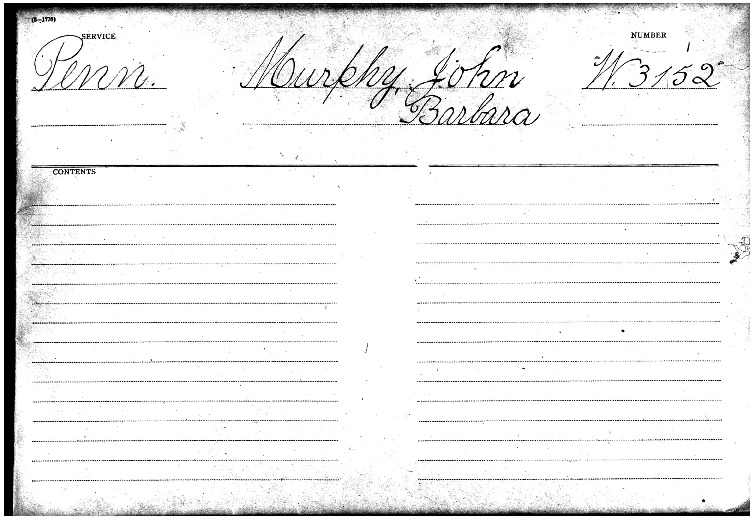 (6—1776)
SERVICE NUMBER
Penn. Murphy, John W. 3152
Barbara
CONTENTS